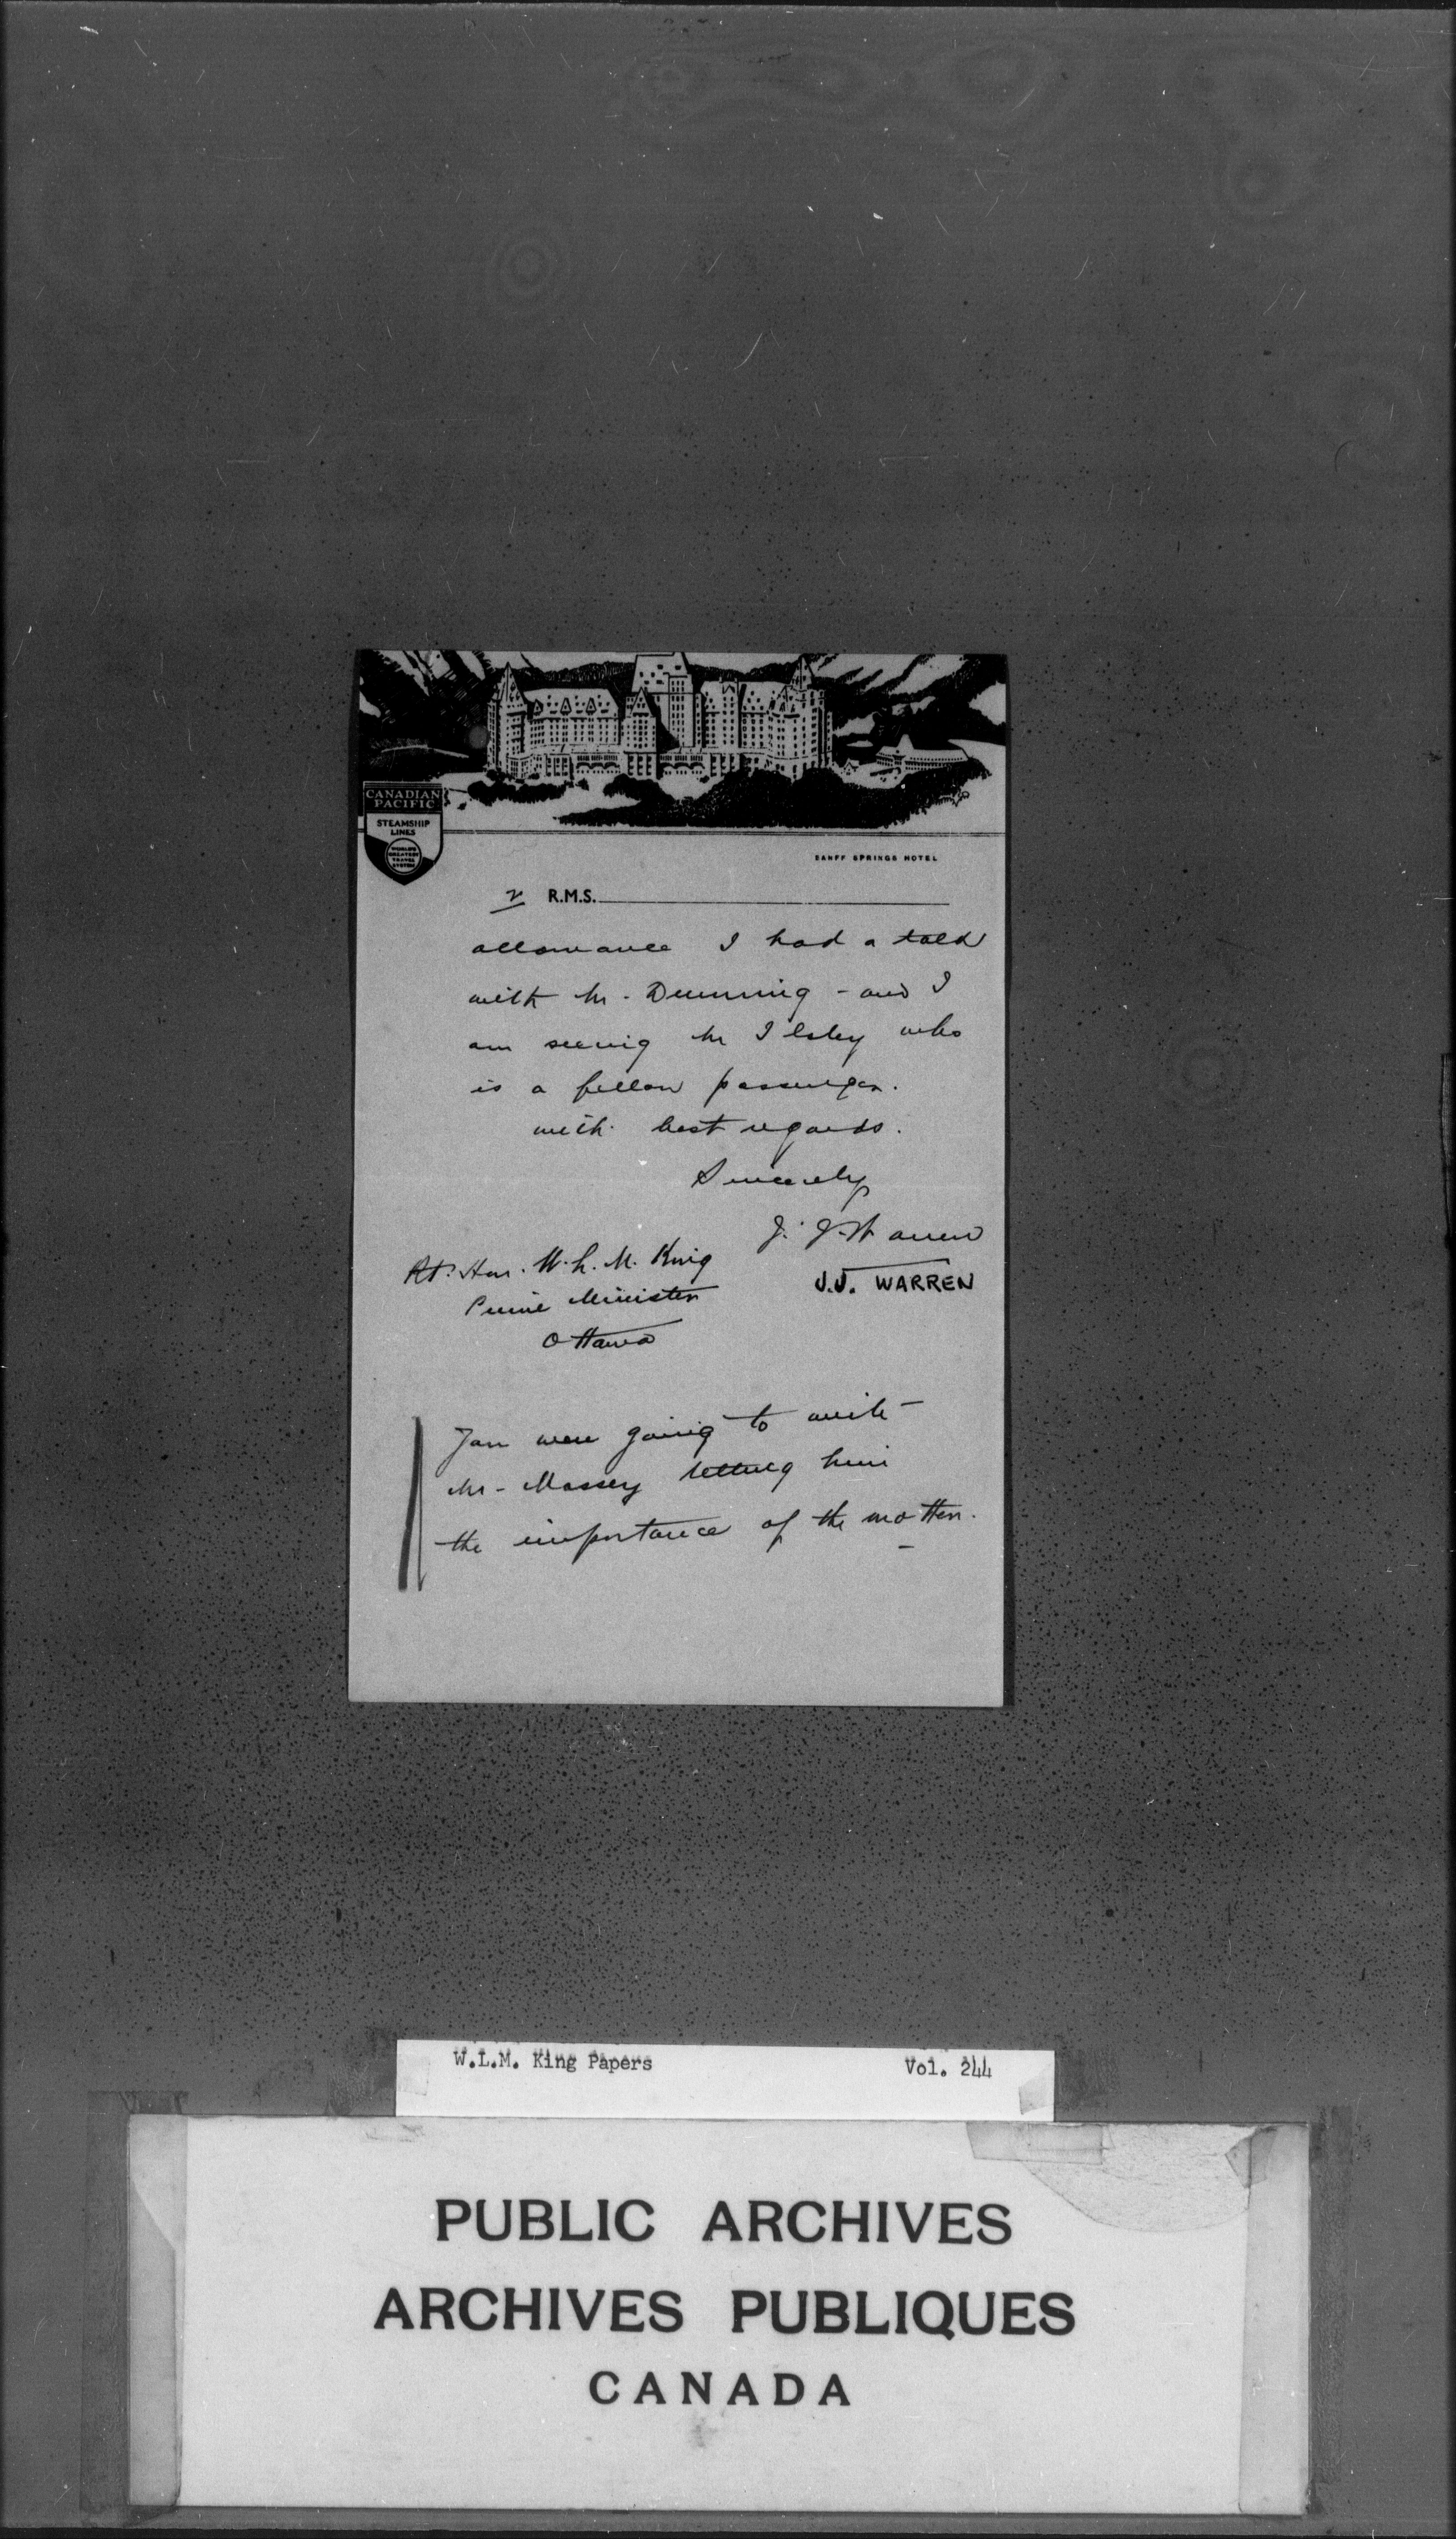 CANADIAN
PACIFIC
STEAMSHIP
LINES
WORLD'S
GREATEST
TRAVEL
SYSTEM
BANFF SPRINGS HOTEL
2 R.M.S.
allowance I had a talk
with Mr. Dunning - and I
am seeing Mr Ilsley who
is a fellow passenger.
with best regards.
Sincerely
J. J. Warren
J.J. WARREN
Rt. Hon. W. L. M. King
Prime Minister
Ottawa
You were going to write
Mr. Massey telling him
the importance of the matter.
W.L.M. King Papers Vol. 244
PUBLIC ARCHIVES
ARCHIVES PUBLIQUES
CANADA